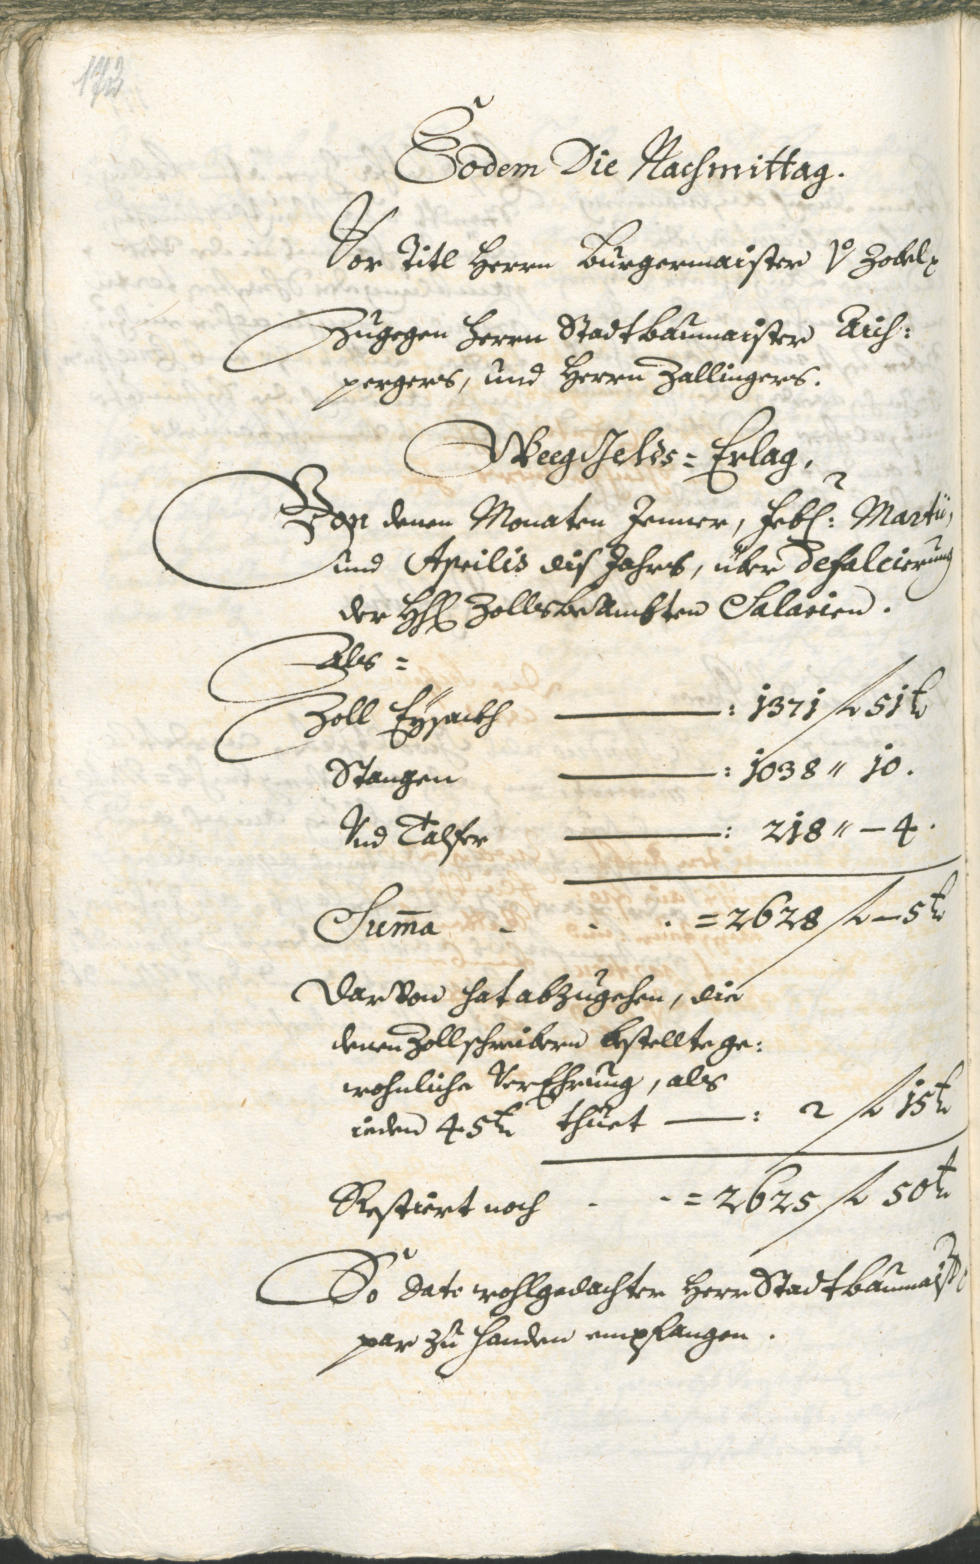 172
Eodem Die Nachmittag.
Vor Titl Herrn Burgermaister V: Zobel
Zugegen Herrn Stadtbaumaister Aich:
pergers, und Herrn Zallingers.
Weeg Gelds=Erlag,
Von denen Monaten Jenner, Febr: Martii,
und Aprilis dis Jahrs, über Defalcierung
der HH Zollsbeambten Salarien.
Als =
Zoll Eysackh : 1371 f 51 k
Stangen : 1038 " 10.
Und Talfer : 218 " – 4.
Summa = 2628 f – 5 k
Darvon hat abzugehen, die
denen Zollschreibern bestelte ge:
wohnliche Verehrung, als
ieden 45 k thuet : 2 f 15 k
Restiert noch = 2625 f 50 k
So dato wohlgedachter Herr Stadtbaumaister
par zu handen empfangen.